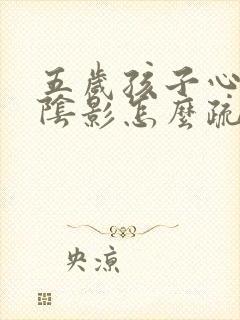 五歲孩子心
陰影怎麼疏
央涼